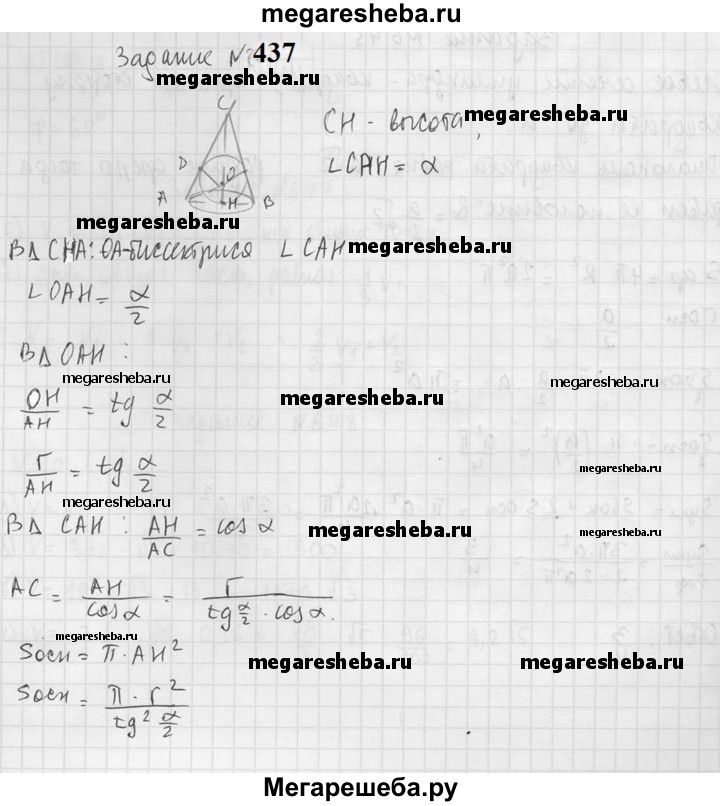 megaresheba.ru
Задание №437
megaresheba.ru
C
СН - высота,
megaresheba.ru
∠CAH = α
D
O
A
H
B
megaresheba.ru
В Δ CHA: OA-биссектриса ∠ CAH
megaresheba.ru
∠ OAH = α/2
В Δ OAH :
megaresheba.ru
megaresheba.ru
OH/AH = tg α/2
megaresheba.ru
r/AH = tg α/2
megaresheba.ru
megaresheba.ru
В Δ CAH : AH/AC = cos α
megaresheba.ru
megaresheba.ru
AC = AH/cos α = r/tg α/2 · cos α.
megaresheba.ru
Sосн = π · AH²
megaresheba.ru
megaresheba.ru
Sосн = π · r²/tg² α/2
Мегарешеба.ру